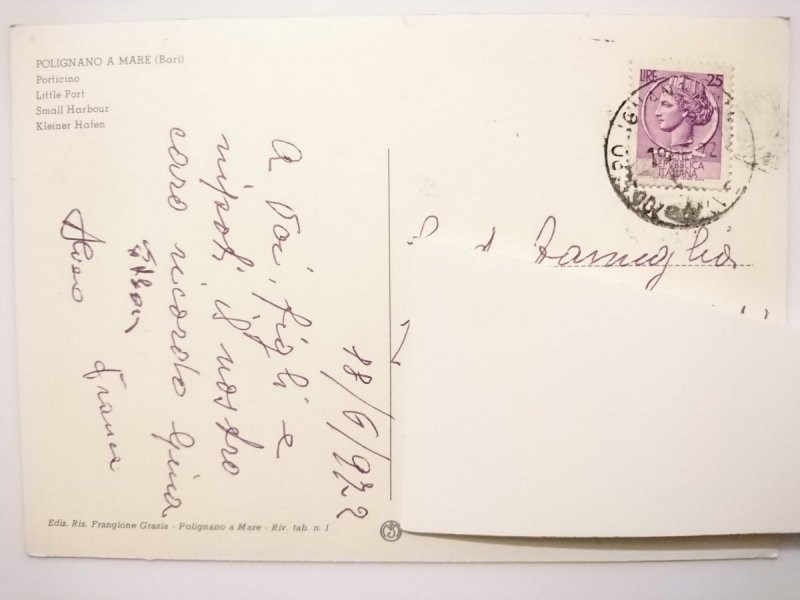 POLIGNANO A MARE (Bari)
Porticino
Little Port
Small Harbour
Kleiner Hafen
LIRE 25
REPUBBLICA
ITALIANA
Famiglia
18/6/972
A Voi, figli e
nipoti il nostro
caro ricordo Gina
Franca
Ediz. Ris. Frangione Grazia - Polignano a Mare - Riv. tab. n. 1